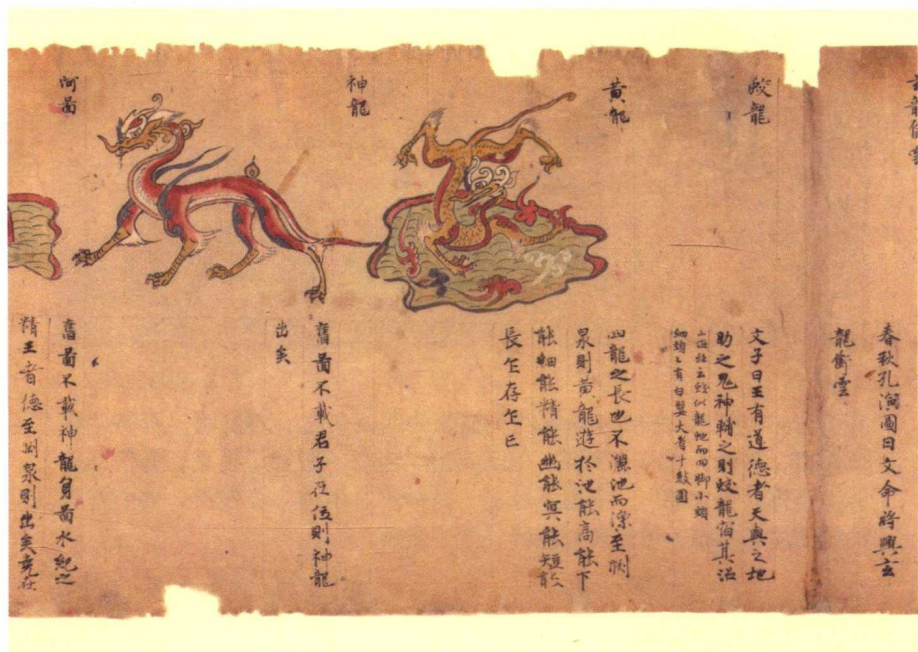 春秋孔演圖曰文命將興玄
龍銜雲
蛟龍
文子曰王有道德者天與之地
助之鬼神輔之則蛟龍宿其沼
山海經云蛟似龍虵而四脚小頭
細頸々有白嬰大者十數圍
黃龍
四龍之長也不漉池而漁至渕
泉則黃龍遊於池能高能下
能細能精能幽能冥能短能
長乍存乍亡
神龍
舊圖不載君子在位則神龍
出矣
河圖
舊圖不載神龍負圖水紀之
精王者德至渕泉則出矣堯在